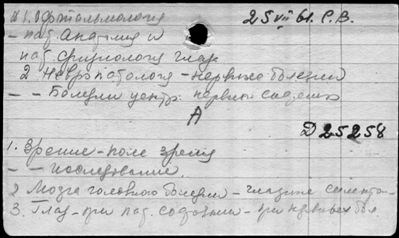 1. Офтальмология 25 VII 61. С.В.
– пат. анатомия и
пат. физиология глаз
2 Невропатология – нервные болезни
– – Болезни центр. нервной системы
А
Д 25258
1. Зрение – поле зрения
– – исследование.
2 Мозга головного болезни – глазные симпто–
3. Глаз – при пат. состоянии – при нервных бол.